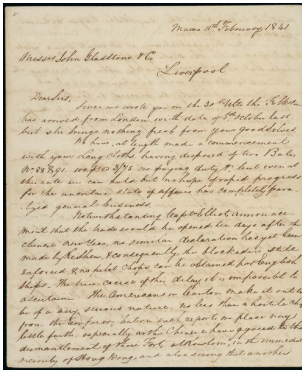 Macao 11th February, 1841
Messrs John Gladstone & Co
Liverpool
Dear Sirs,
Since we wrote you on the 30th Ulto the
has arrived from London with date of 5th October last
but she brings nothing fresh from your good selves
We have at length made a commencement
with your Long Cloths having disposed of two Bales
No 88 & 91 at 3/95 duty & but even at
this rate we can make but rapid progress
for the uncertain state of affairs has completely para-
lyzed general business.
Notwithstanding Capt Elliot's announce-
ment that the trade would be opened ten days after the
Chinese New Year, no similar declaration has yet been
made by Keshen, & consequently the blockade is still
enforced & no pilot Chops can be obtained for English
ships. The true cause of the delay it is impossible to
ascertain. The Americans in Canton make it out to
be of a very serious nature, no less than a hostile
from the Emperor, but on such reports we place very
little faith especially as the Chinese have agreed to the
dismantlement of their Forts at Kowloon, in the immediate
vicinity of Hong Kong, and also seeing that another